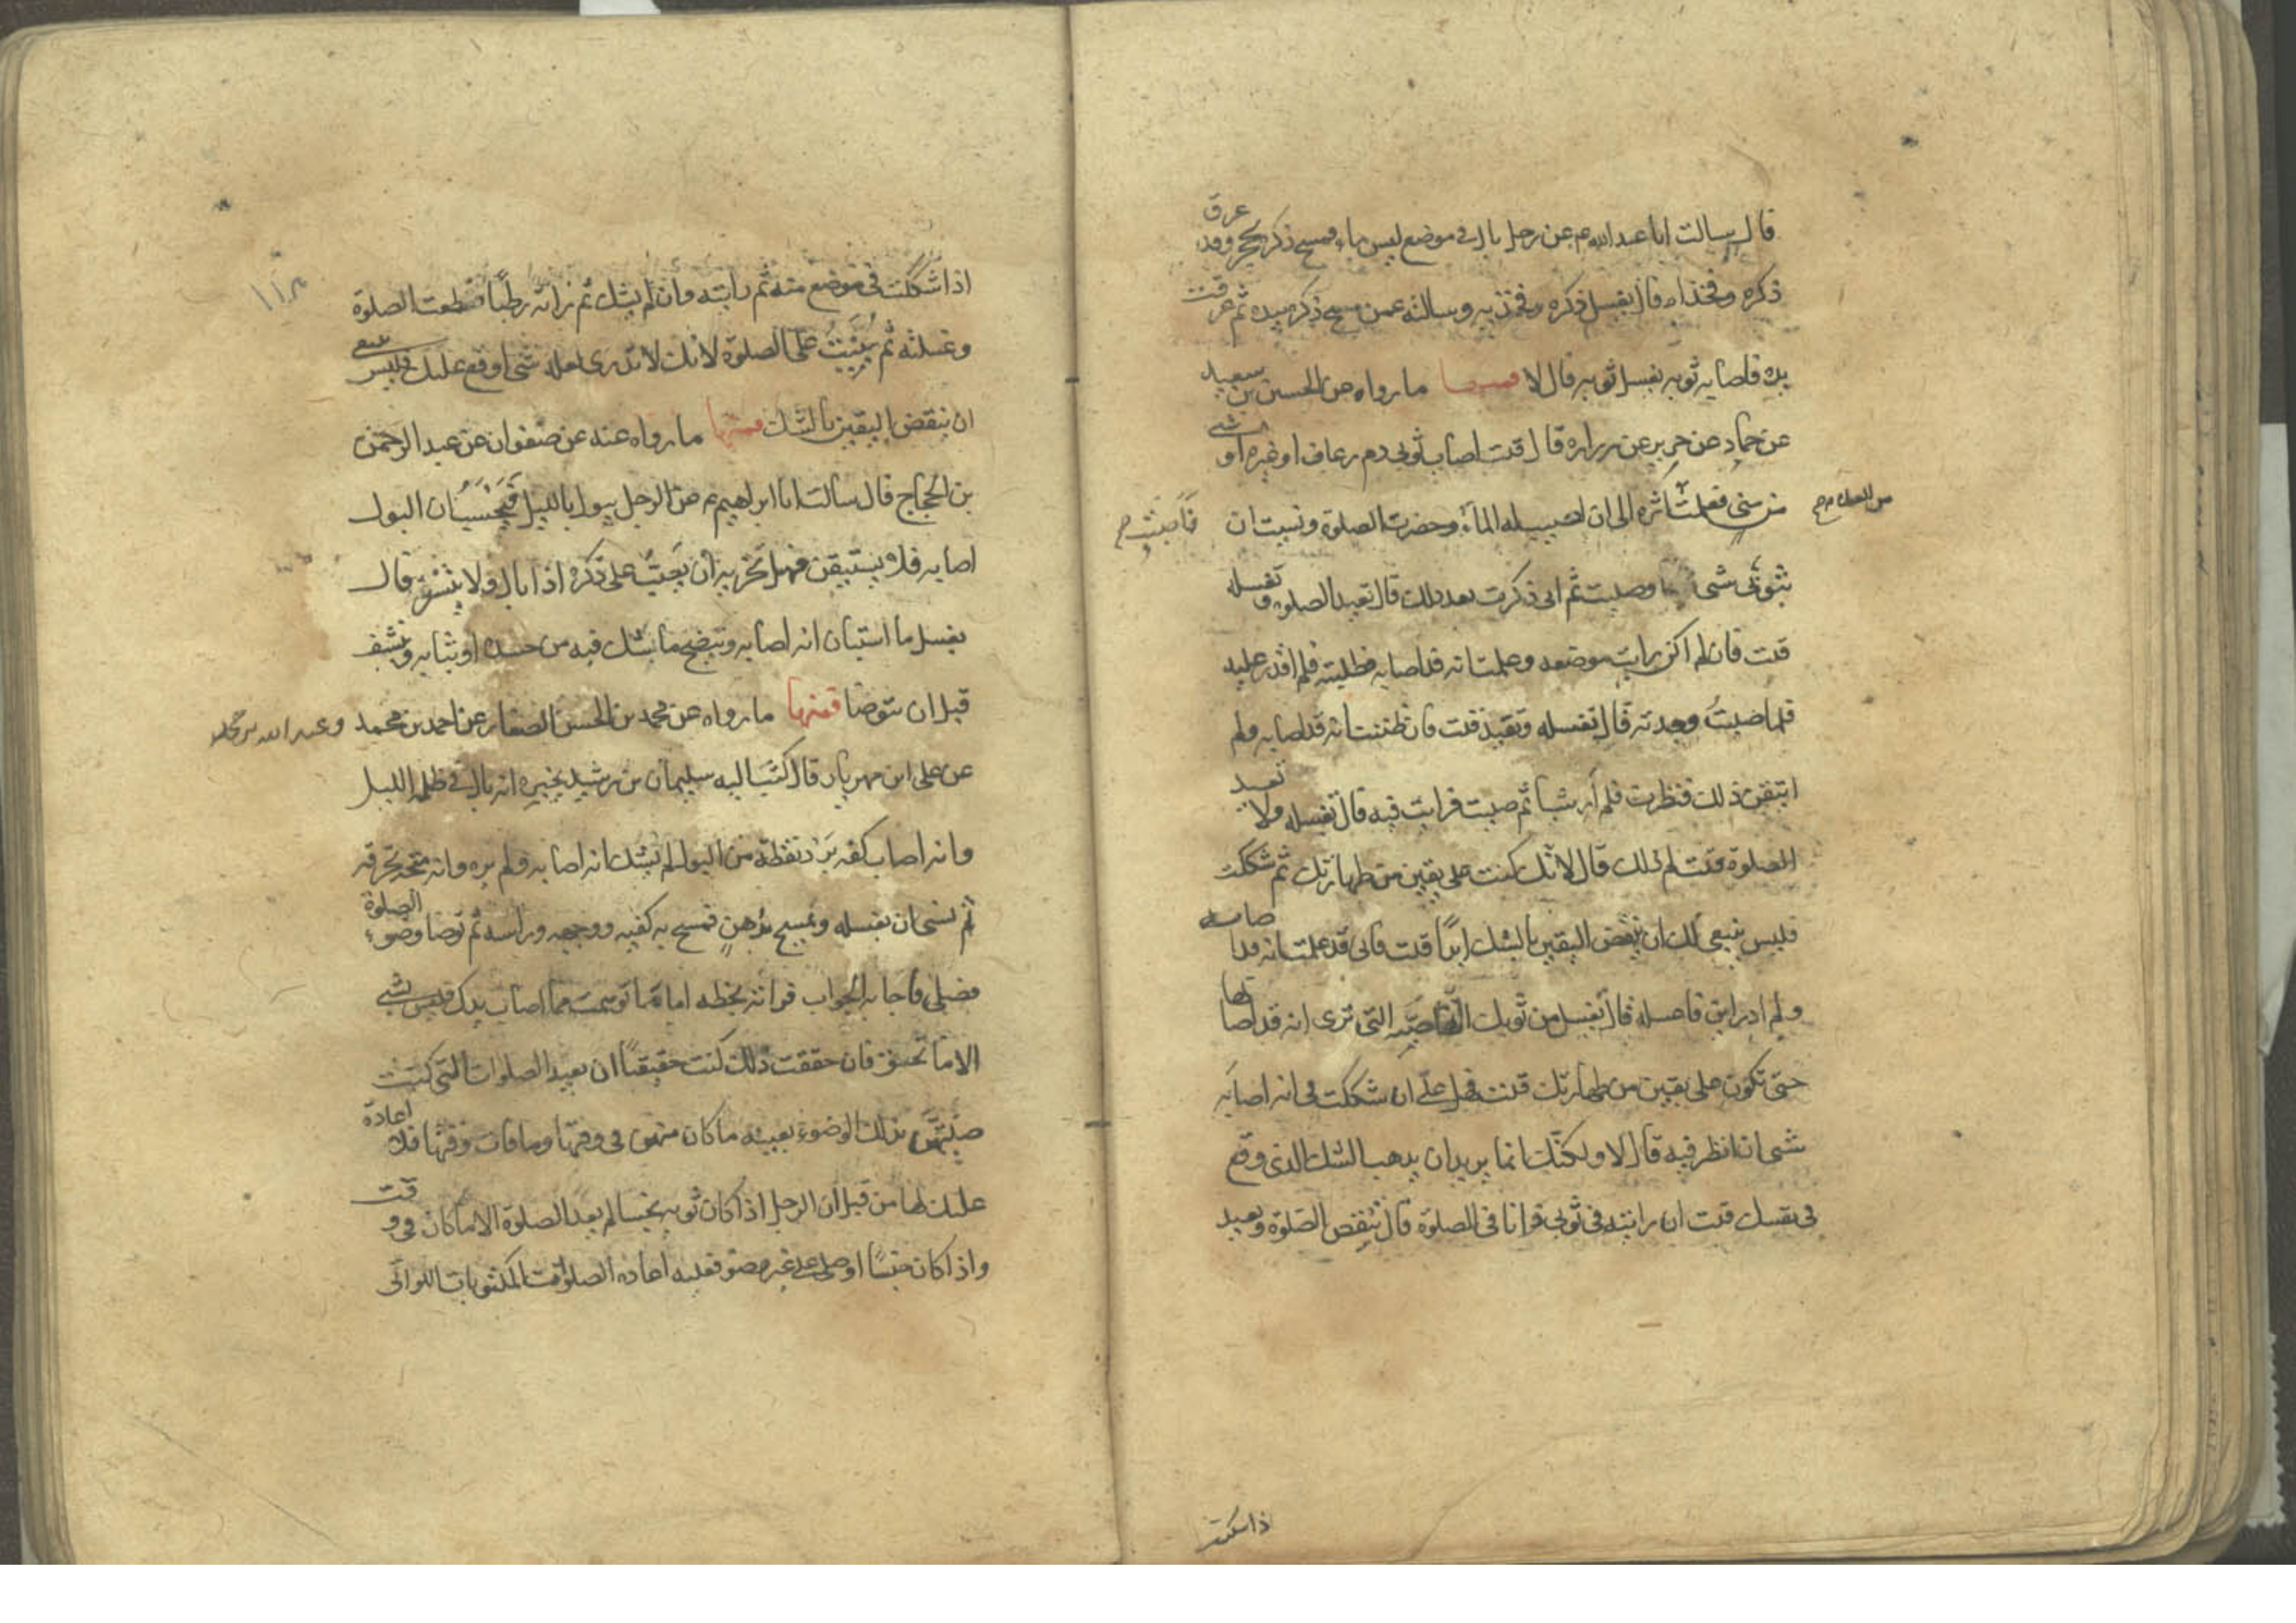 قال سالت ابا عبد الله ع عن رجل بال فى موضع ليس ماء فمسح ذكره بحجر وقد عرق
ذكره وفخذاه قال يغسل ذكره وفخذيه وسالته عمن مسح ذكره بيده ثم عرقت
يده فاصابه ثوبه يغسل ثوبه قال لا فمنها ما رواه عن الحسين بن سعيد
عن حماد عن حريز عن زراره قال قلت اصاب ثوبى دم رعاف او غيره او شى
من منى فعلمت اثره الى ان اصيب له الماء وحضرت الصلوة ونسيت ان
فاصبت
بثوبى شى وصليت ثم انى ذكرت بعد ذلك قال تعيد الصلوه وتغسله
قلت فان لم اكن رايت موضعه وعلمت انه قد اصابه فطلبته فلم اقدر عليه
فلما صليت وجدته قال تغسله وتعيد قلت فان ظننت انه قد اصابه ولم
اتيقن ذلك فنظرت فلم ار شيا ثم صليت فرايت فيه قال تغسله ولا تعيد
الصلوة قلت لم ذلك قال لانك كنت على يقين من طهارتك ثم شككت
فليس ينبغى لك ان تنقض اليقين بالشك ابدا قلت فانى قد علمت انه قد اصابه
ولم ادر اين فاغسله قال تغسل من ثوبك الناحيه التى ترى انه قد اصابها
حتى تكون على يقين من طهارتك قلت فهل على ان شككت فى انه اصابه
شى ان انظر فيه قال لا ولكنك انما يريد ان يذهب الشك الذى وقع
فى نفسك قلت ان رايته فى ثوبى وانا فى الصلوة قال تنقض الصلوة وتعيد
اذا شككت
١١٣
اذا شككت فى موضع منه ثم رايته وان لم يشك ثم رايته رطبا قطعت الصلوة
وغسلته ثم بنيت على الصلوة لانك لا تدرى لعله شى اوقع عليك فليس ينبغى
ان ينقض اليقين بالشك فمنها ما رواه عنه عن صفوان عن عبد الرحمن
بن الحجاج قال سالت ابا ابراهيم ع عن الرجل يبول بالليل فيحسب ان البول
اصابه فلا يستيقن فهل تجزيه ان يصب على ذكره اذا بال ولا يتنشف قال
يغسل ما استبان انه اصابه وينضح ما يشك فيه من جسده او ثيابه ويتنشف
قبل ان يتوضا فمنها ما رواه عن محمد بن الحسن الصفار عن احمد بن محمد وعبد الله بن محمد
عن على ابن مهزيار قال كتب اليه سليمان بن رشيد يخبره انه بال فى ظلمة الليل
وانه اصاب كفه برد نقطة من البول لم يشك انه اصابه ولم يره وانه مسحه بخرقه
ثم نسى ان يغسله وتمسح بدهن فمسح به كفيه ووجهه وراسه ثم توضا وضوء الصلوة
فصلى فاجابه الجواب قراته بخطه اما ما توهمت مما اصاب يدك فليس بشى
الا ما تحقق فان حققت ذلك كنت حقيقا ان تعيد الصلوات التى كنت
صليتهن بذلك الوضوء بعينه ما كان منهن فى وقتها وما فات وقتها فلا اعادة
عليك لها من قبل ان الرجل اذا كان ثوبه نجسا لم يعد الصلوة الا ما كان فى وقت
واذا كان جنبا او صلى على غير وضو فعليه اعاده الصلوات المكتوبات اللواتى